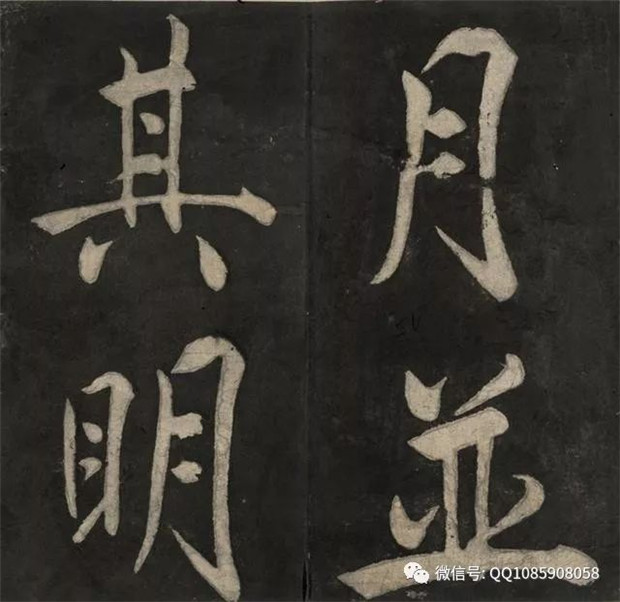 月並
其明
微信号: QQ1085908058